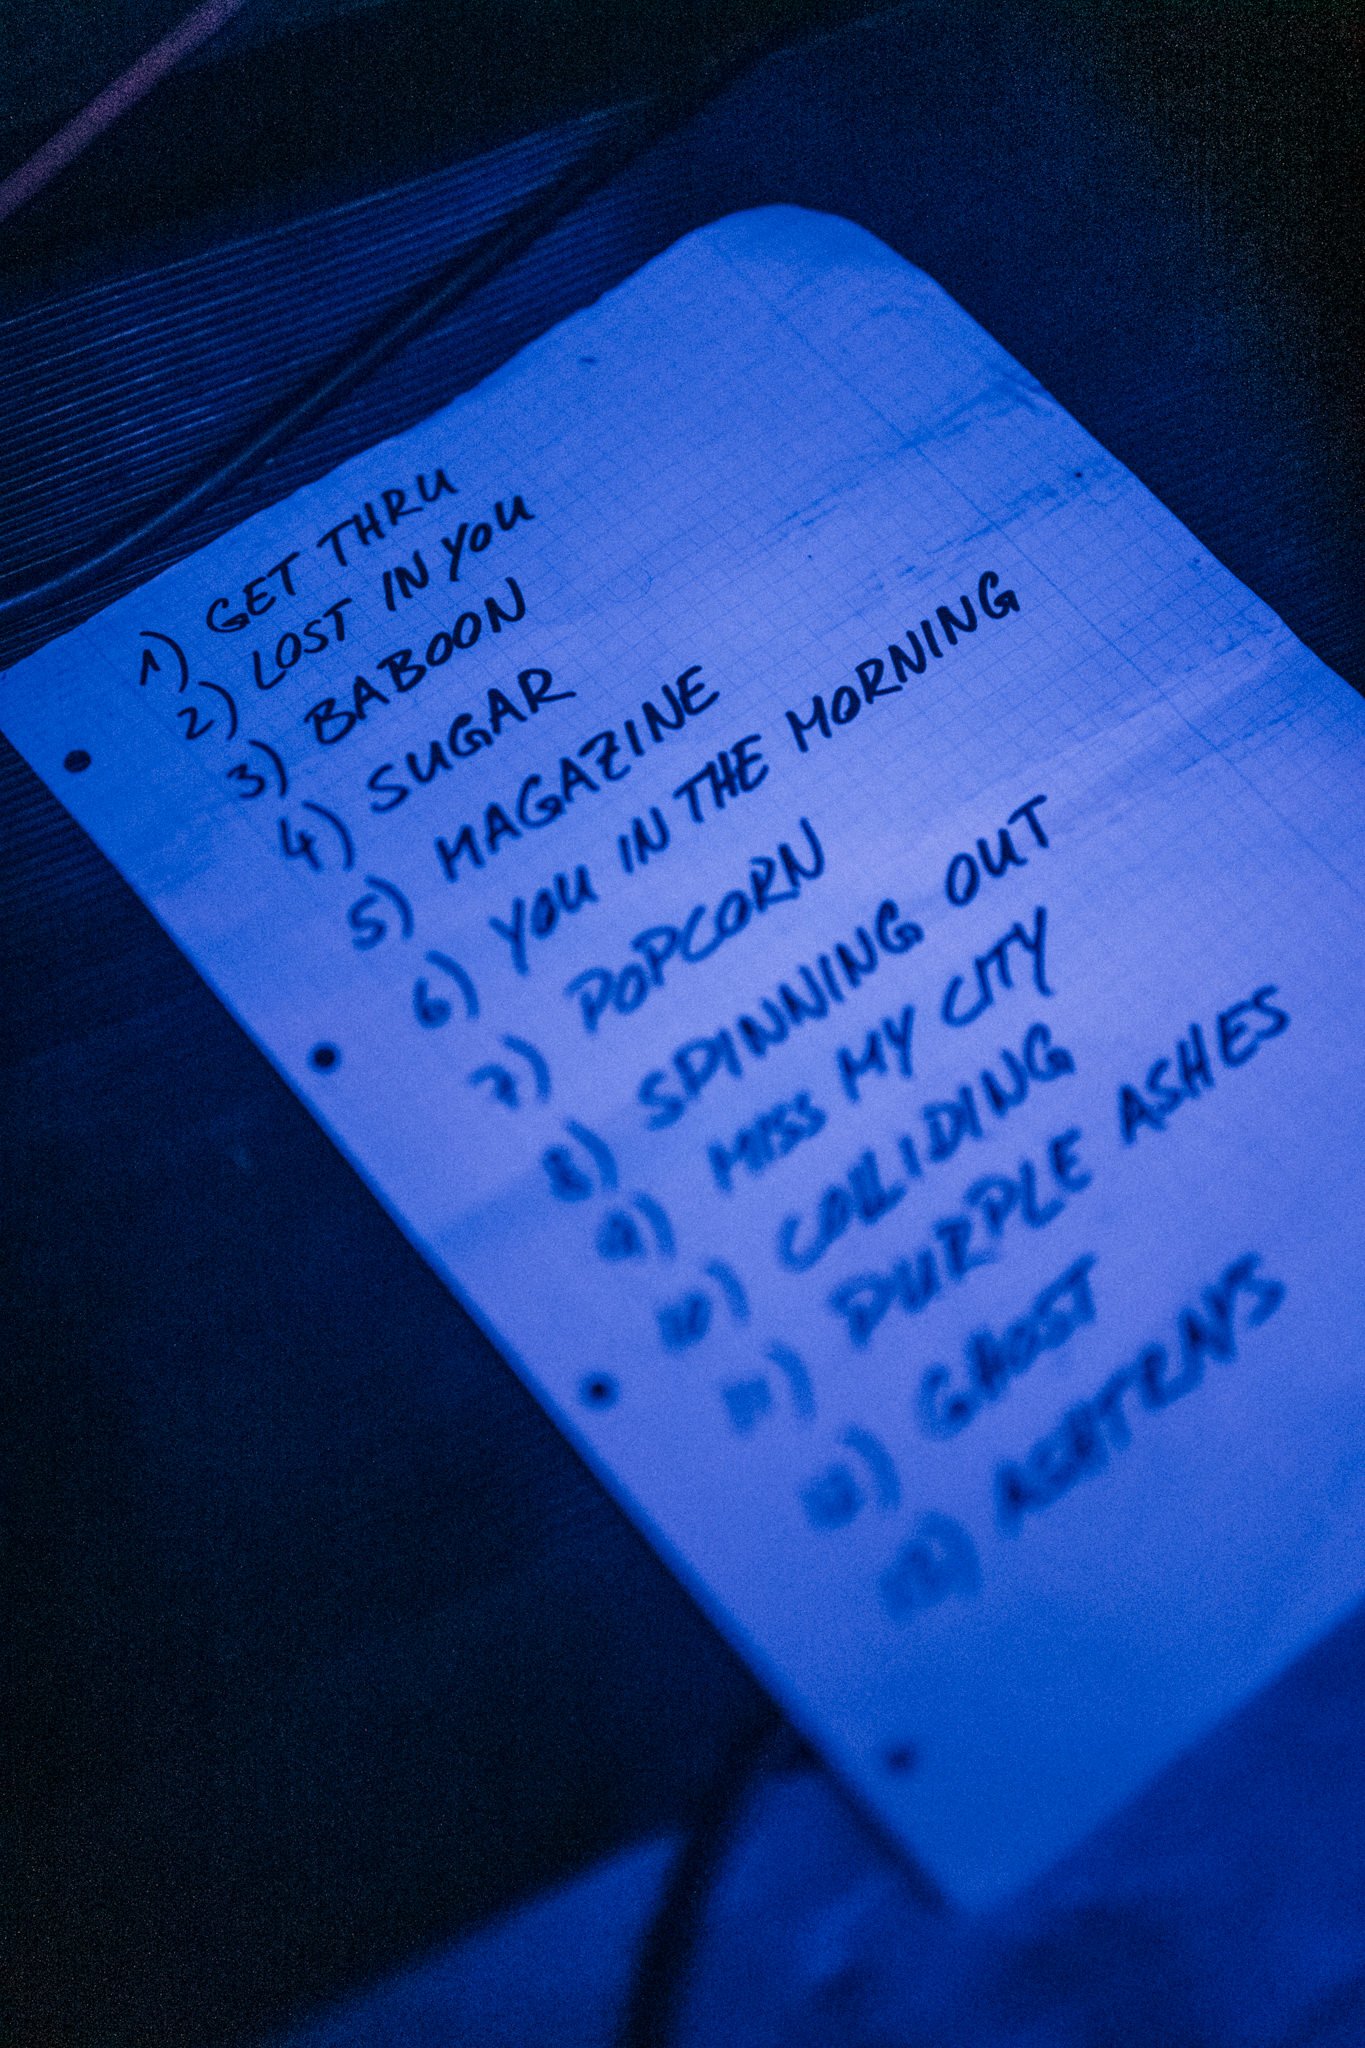 1) GET THRU
2) LOST IN YOU
3) BABOON
4) SUGAR
5) MAGAZINE
6) YOU IN THE MORNING
7) POPCORN
8) SPINNING OUT
9) MISS MY CITY
10) COLLIDING
11) PURPLE ASHES
12) GHOST
13) ASHTRAYS